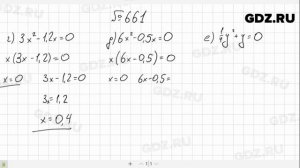 GDZ.RU
№661
г) 3x² - 1,2x = 0
x(3x - 1,2) = 0
x = 0 3x - 1,2 = 0
3x = 1,2
x = 0,4
д) 6x² - 0,5x = 0
x(6x - 0,5) = 0
x = 0 6x - 0,5 =
y² + y = 0
1/1
GDZ.RU